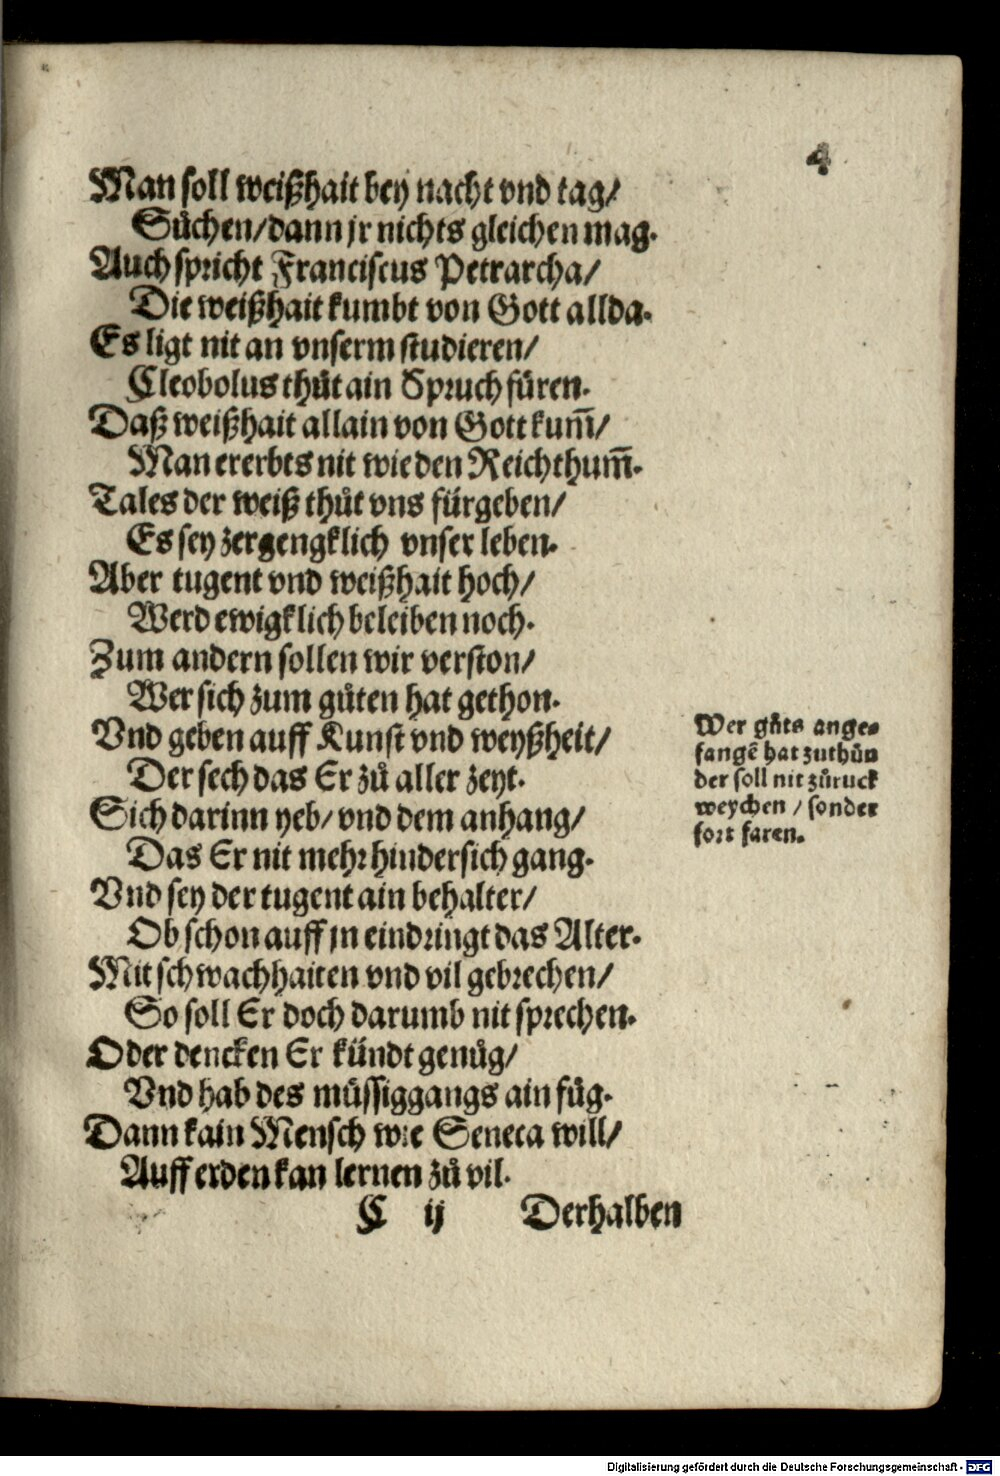 4
Man soll weißhait bey nacht vnd tag/
Sůchen/dann jr nichts gleichen mag.
Auch spricht Franciscus Petrarcha/
Die weißhait kumbt von Gott allda.
Es ligt nit an vnserm studieren/
Cleobolus thůt ain Spruch füren.
Daß weißhait allain von Gott kum̃/
Man ererbts nit wie den Reichthum̃.
Tales der weiß thůt vns fürgeben/
Es sey zergengklich vnser leben.
Aber tugent vnd weißhait hoch/
Werd ewigklich beleiben noch.
Zum andern sollen wir verston/
Wer sich zum gůten hat gethon.
Vnd geben auff Kunst vnd weyßheit/
Der sech das Er zů aller zeyt.
Sich darinn yeb/ vnd dem anhang/
Das Er nit mehr hindersich gang.
Vnd sey der tugent ain behalter/
Ob schon auff jn eindringt das Alter.
Mit schwachhaiten vnd vil gebrechen/
So soll Er doch darumb nit sprechen.
Oder dencken Er kündt genůg/
Vnd hab des müssiggangs ain fůg.
Dann kain Mensch wie Seneca will/
Auff erden kan lernen zů vil.
C ij Derhalben
Wer gůts ange-
fangẽ hat zuthůn
der soll nit zůruck
weychen / sonder
fort faren.
Digitalisierung gefördert durch die Deutsche Forschungsgemeinschaft - DFG